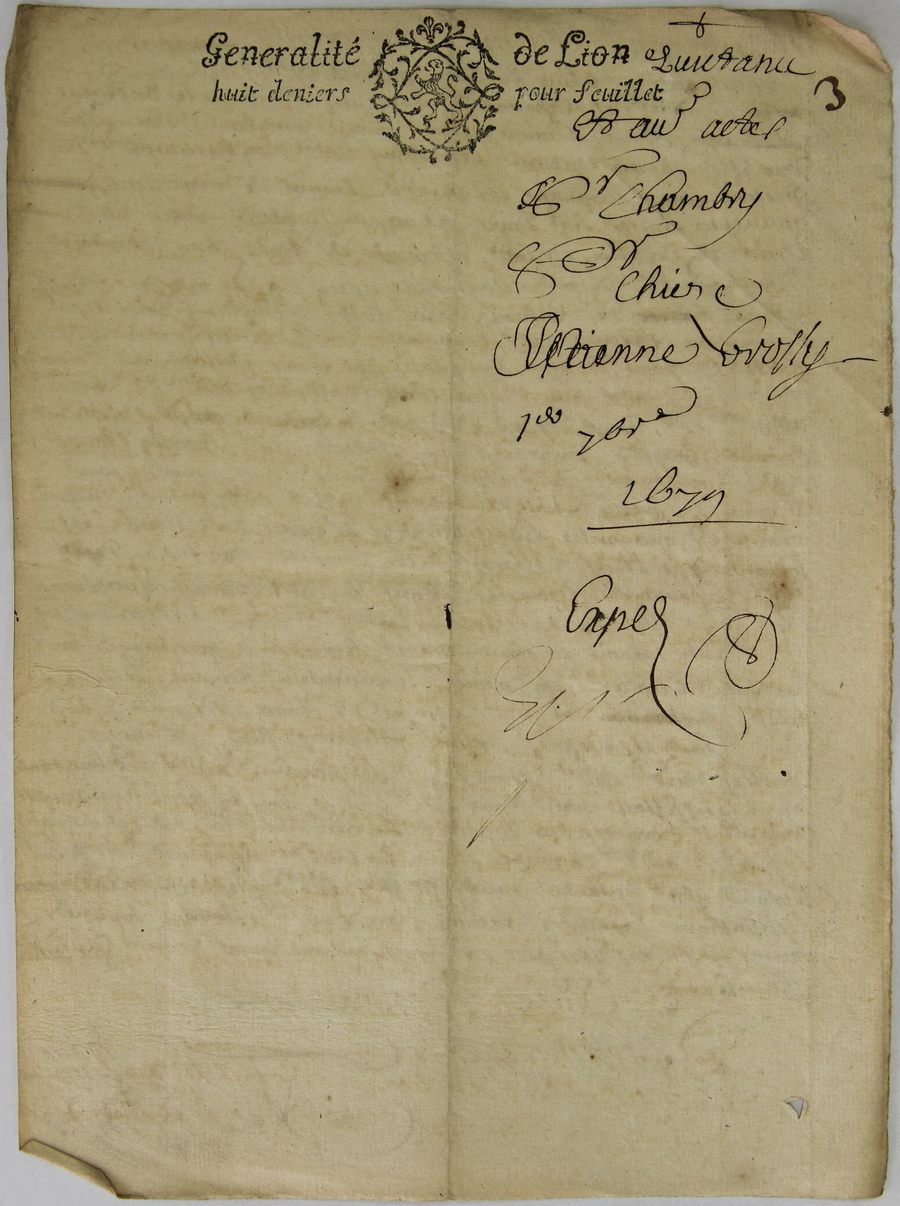 Generalité de Lion
huit deniers pour feuillet
3
Quittance
et au^e actes
S^r Chambry
S^r
Chiese
Estienne brossy
7bre
1679
Exped